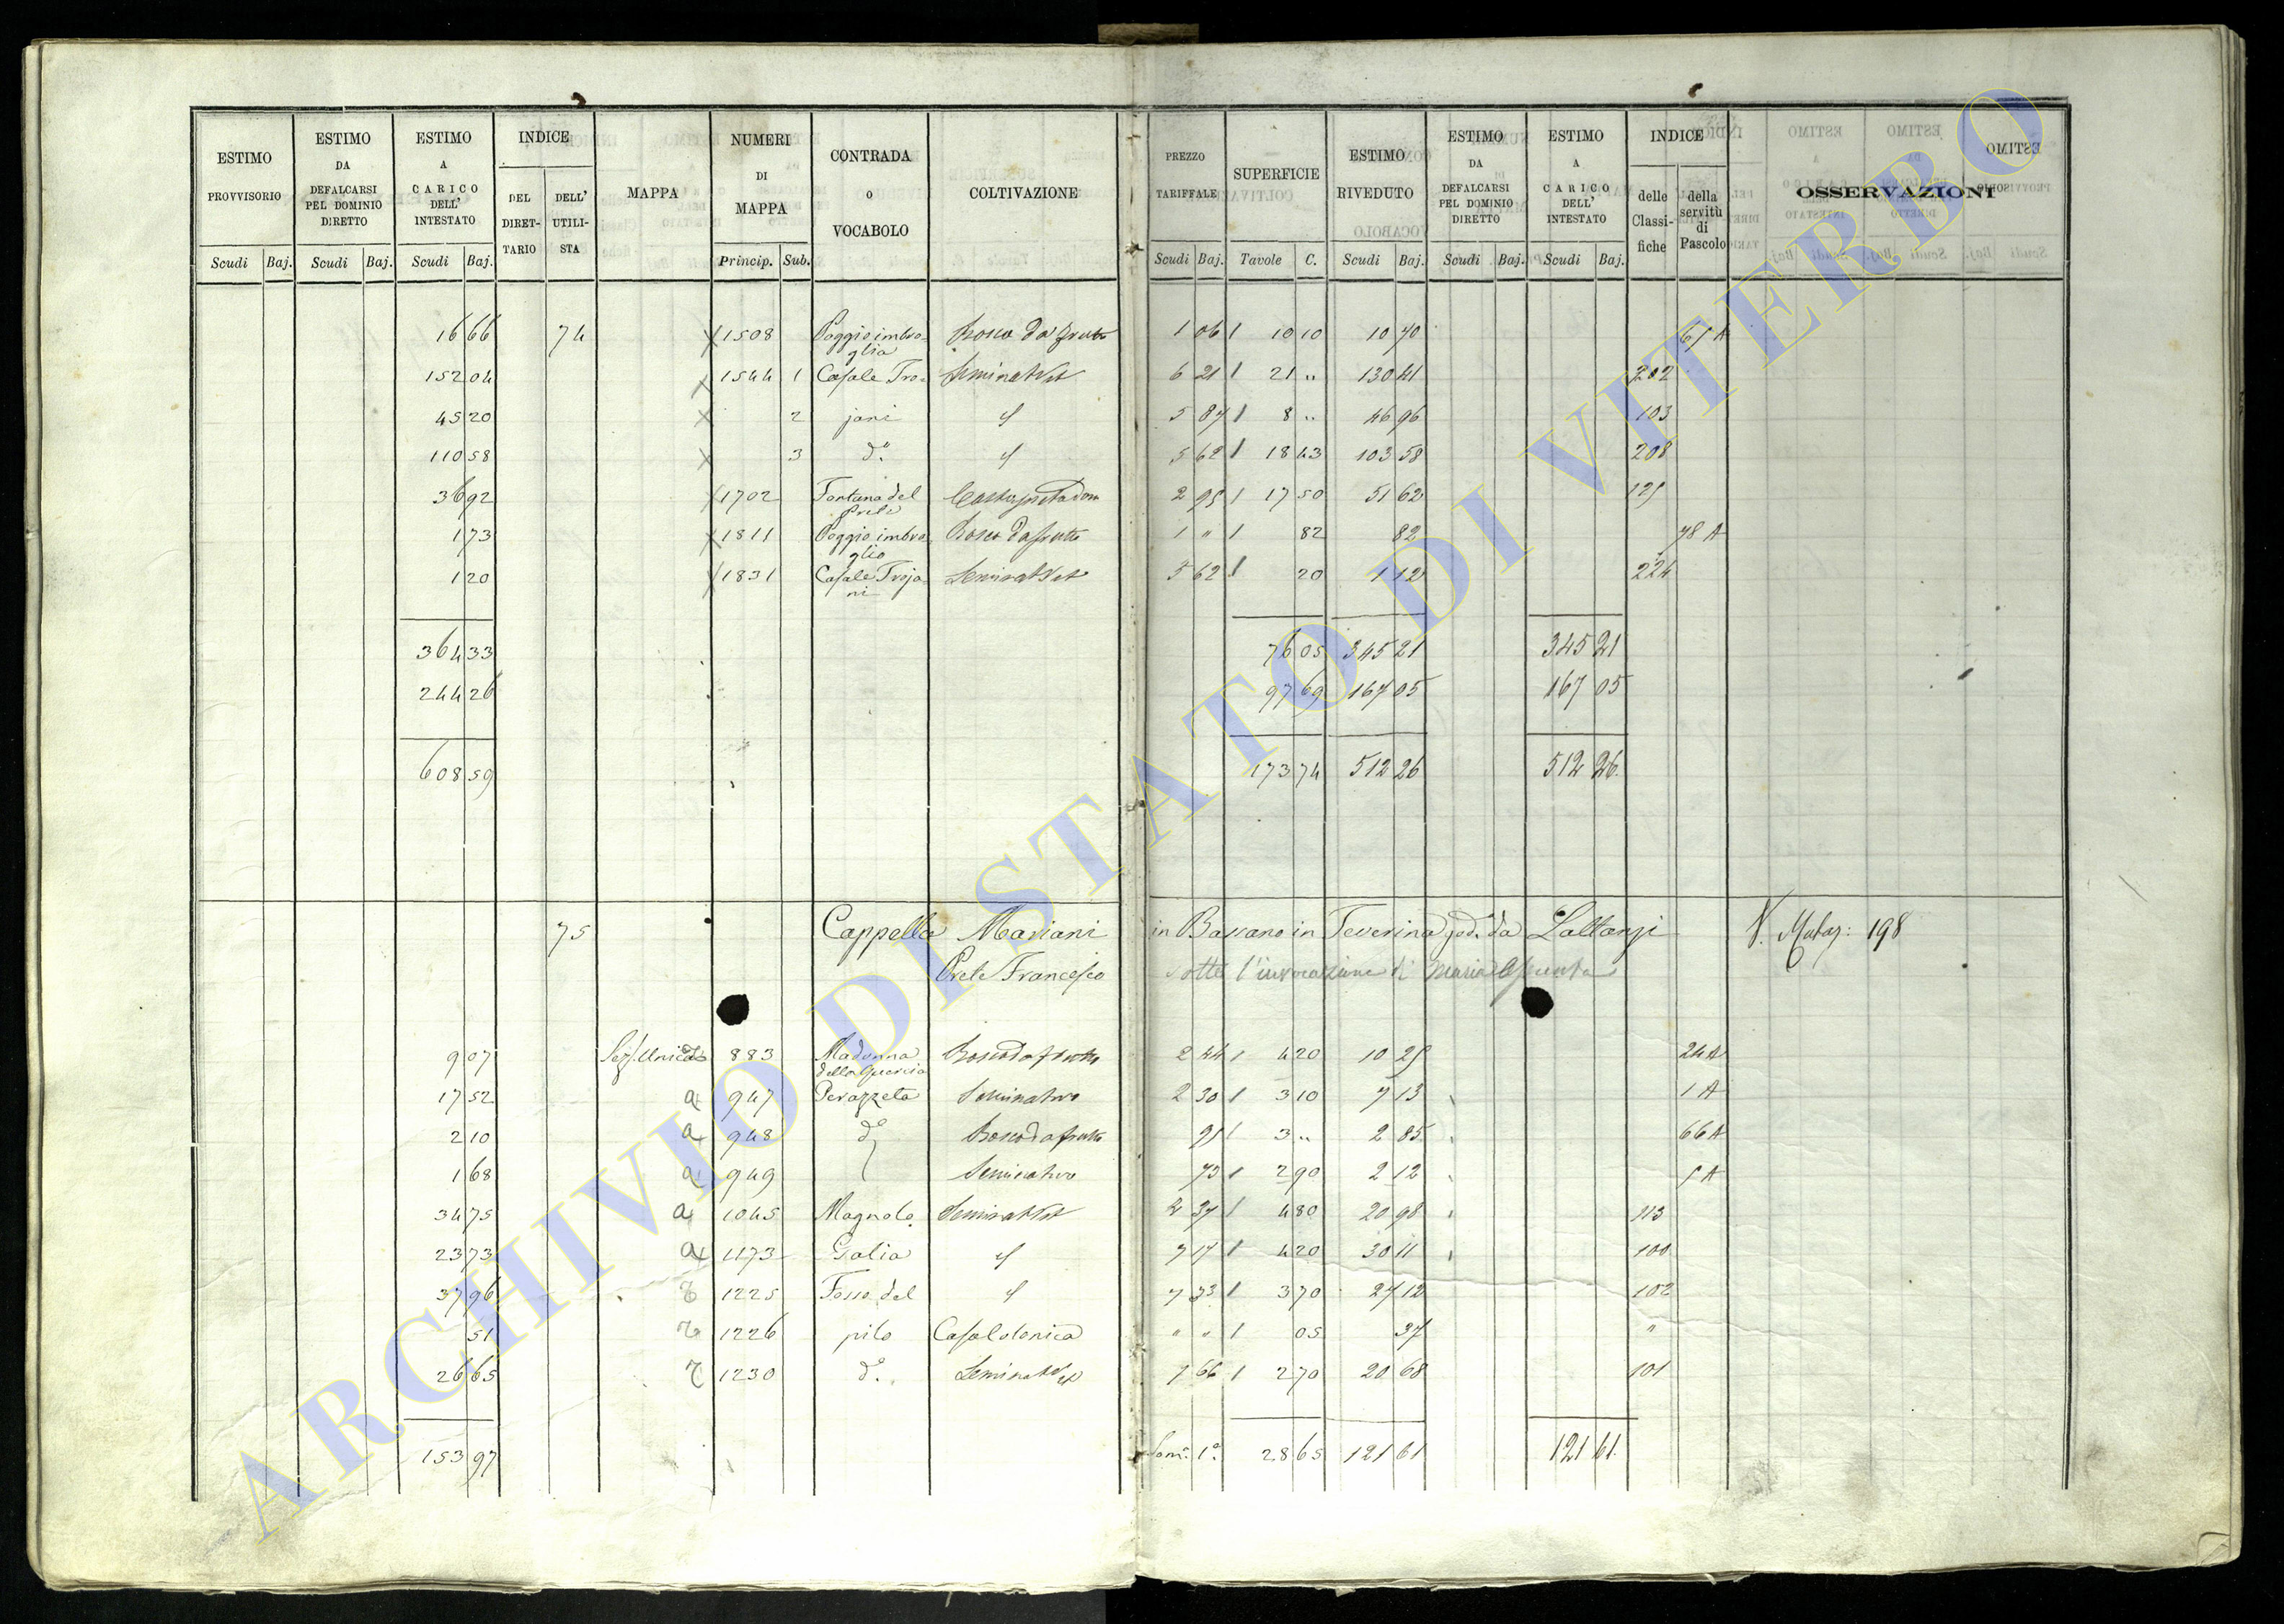 ESTIMO PROVVISORIO | ESTIMO DA DEFALCARSI PEL DOMINIO DIRETTO | ESTIMO A CARICO DELL' INTESTATO | INDICE | MAPPA | NUMERI DI MAPPA | CONTRADA O VOCABOLO | COLTIVAZIONE | PREZZO TARIFFALE | SUPERFICIE | ESTIMO RIVEDUTO | ESTIMO DA DEFALCARSI PEL DOMINIO DIRETTO | ESTIMO A CARICO DELL' INTESTATO | INDICE | OSSERVAZIONI
DEL DIRETTARIO | DELL' UTILISTA | delle Classifiche | della servitù di Pascolo
Scudi Baj. | Scudi Baj. | Scudi Baj. | Princip. Sub. | Scudi Baj. | Tavole C. | Scudi Baj. | Scudi Baj. | Scudi Baj.
16 66 | 74 | 1508 | Poggio imbroglia | Bosco da frutto | 1 06 | 10 10 | 10 70 | 65 A
152 04 | 1544 1 | Casale Tro= | Seminat Vit | 6 21 | 21 " | 130 41 | 202
45 20 | 2 | jani | 5 87 | 8 " | 46 96 | 103
110 58 | 3 | d.o | 5 62 | 18 43 | 103 58 | 208
36 92 | 1702 | Fontana del Prete | 2 95 | 17 50 | 51 62 | 125
1 73 | 1811 | Poggio imbroglio | Bosco da frutto | 1 " | 82 | 82 | 78 A
1 20 | 1831 | Casale Trojani | Seminat Vit | 5 62 | 20 | 1 12 | 224
364 33 | 76 05 | 345 21 | 345 21
244 26 | 97 69 | 167 05 | 167 05
608 59 | 173 74 | 512 26 | 512 26
75 | Cappella Mariani in Bassano in Teverina god. da Lattanzi | V. Mutaz: 198
Prete Francesco sotto l'invocazione di Maria Assunta
9 07 | Sez. Unica | 883 | Madonna della Quercia | Bosco da frutto | 2 44 | 4 20 | 10 25 | 24 A
17 52 | 947 | Perazzeta | Seminativo | 2 30 | 3 10 | 7 13 | 1 A
2 10 | 948 | d.o | Bosco da frutto | 95 | 3 " | 2 85 | 66 A
1 68 | 949 | Seminativo | 73 | 2 90 | 2 12 | 5 A
34 75 | 1045 | Magnolo | Seminat Vit | 4 37 | 4 80 | 20 98 | 113
23 73 | 1173 | Galia | 7 17 | 4 20 | 30 11 | 100
37 96 | 1225 | Fosso del | 7 33 | 3 70 | 27 12 | 102
51 | 1226 | pilo | Casa Colonica | " " | 05 | 37 | "
26 65 | 1230 | d.o | Seminat Vit | 7 66 | 2 70 | 20 68 | 101
153 97 | Som. 1a. | 28 65 | 121 61 | 121 61
ARCHIVIO DI STATO DI VITERBO